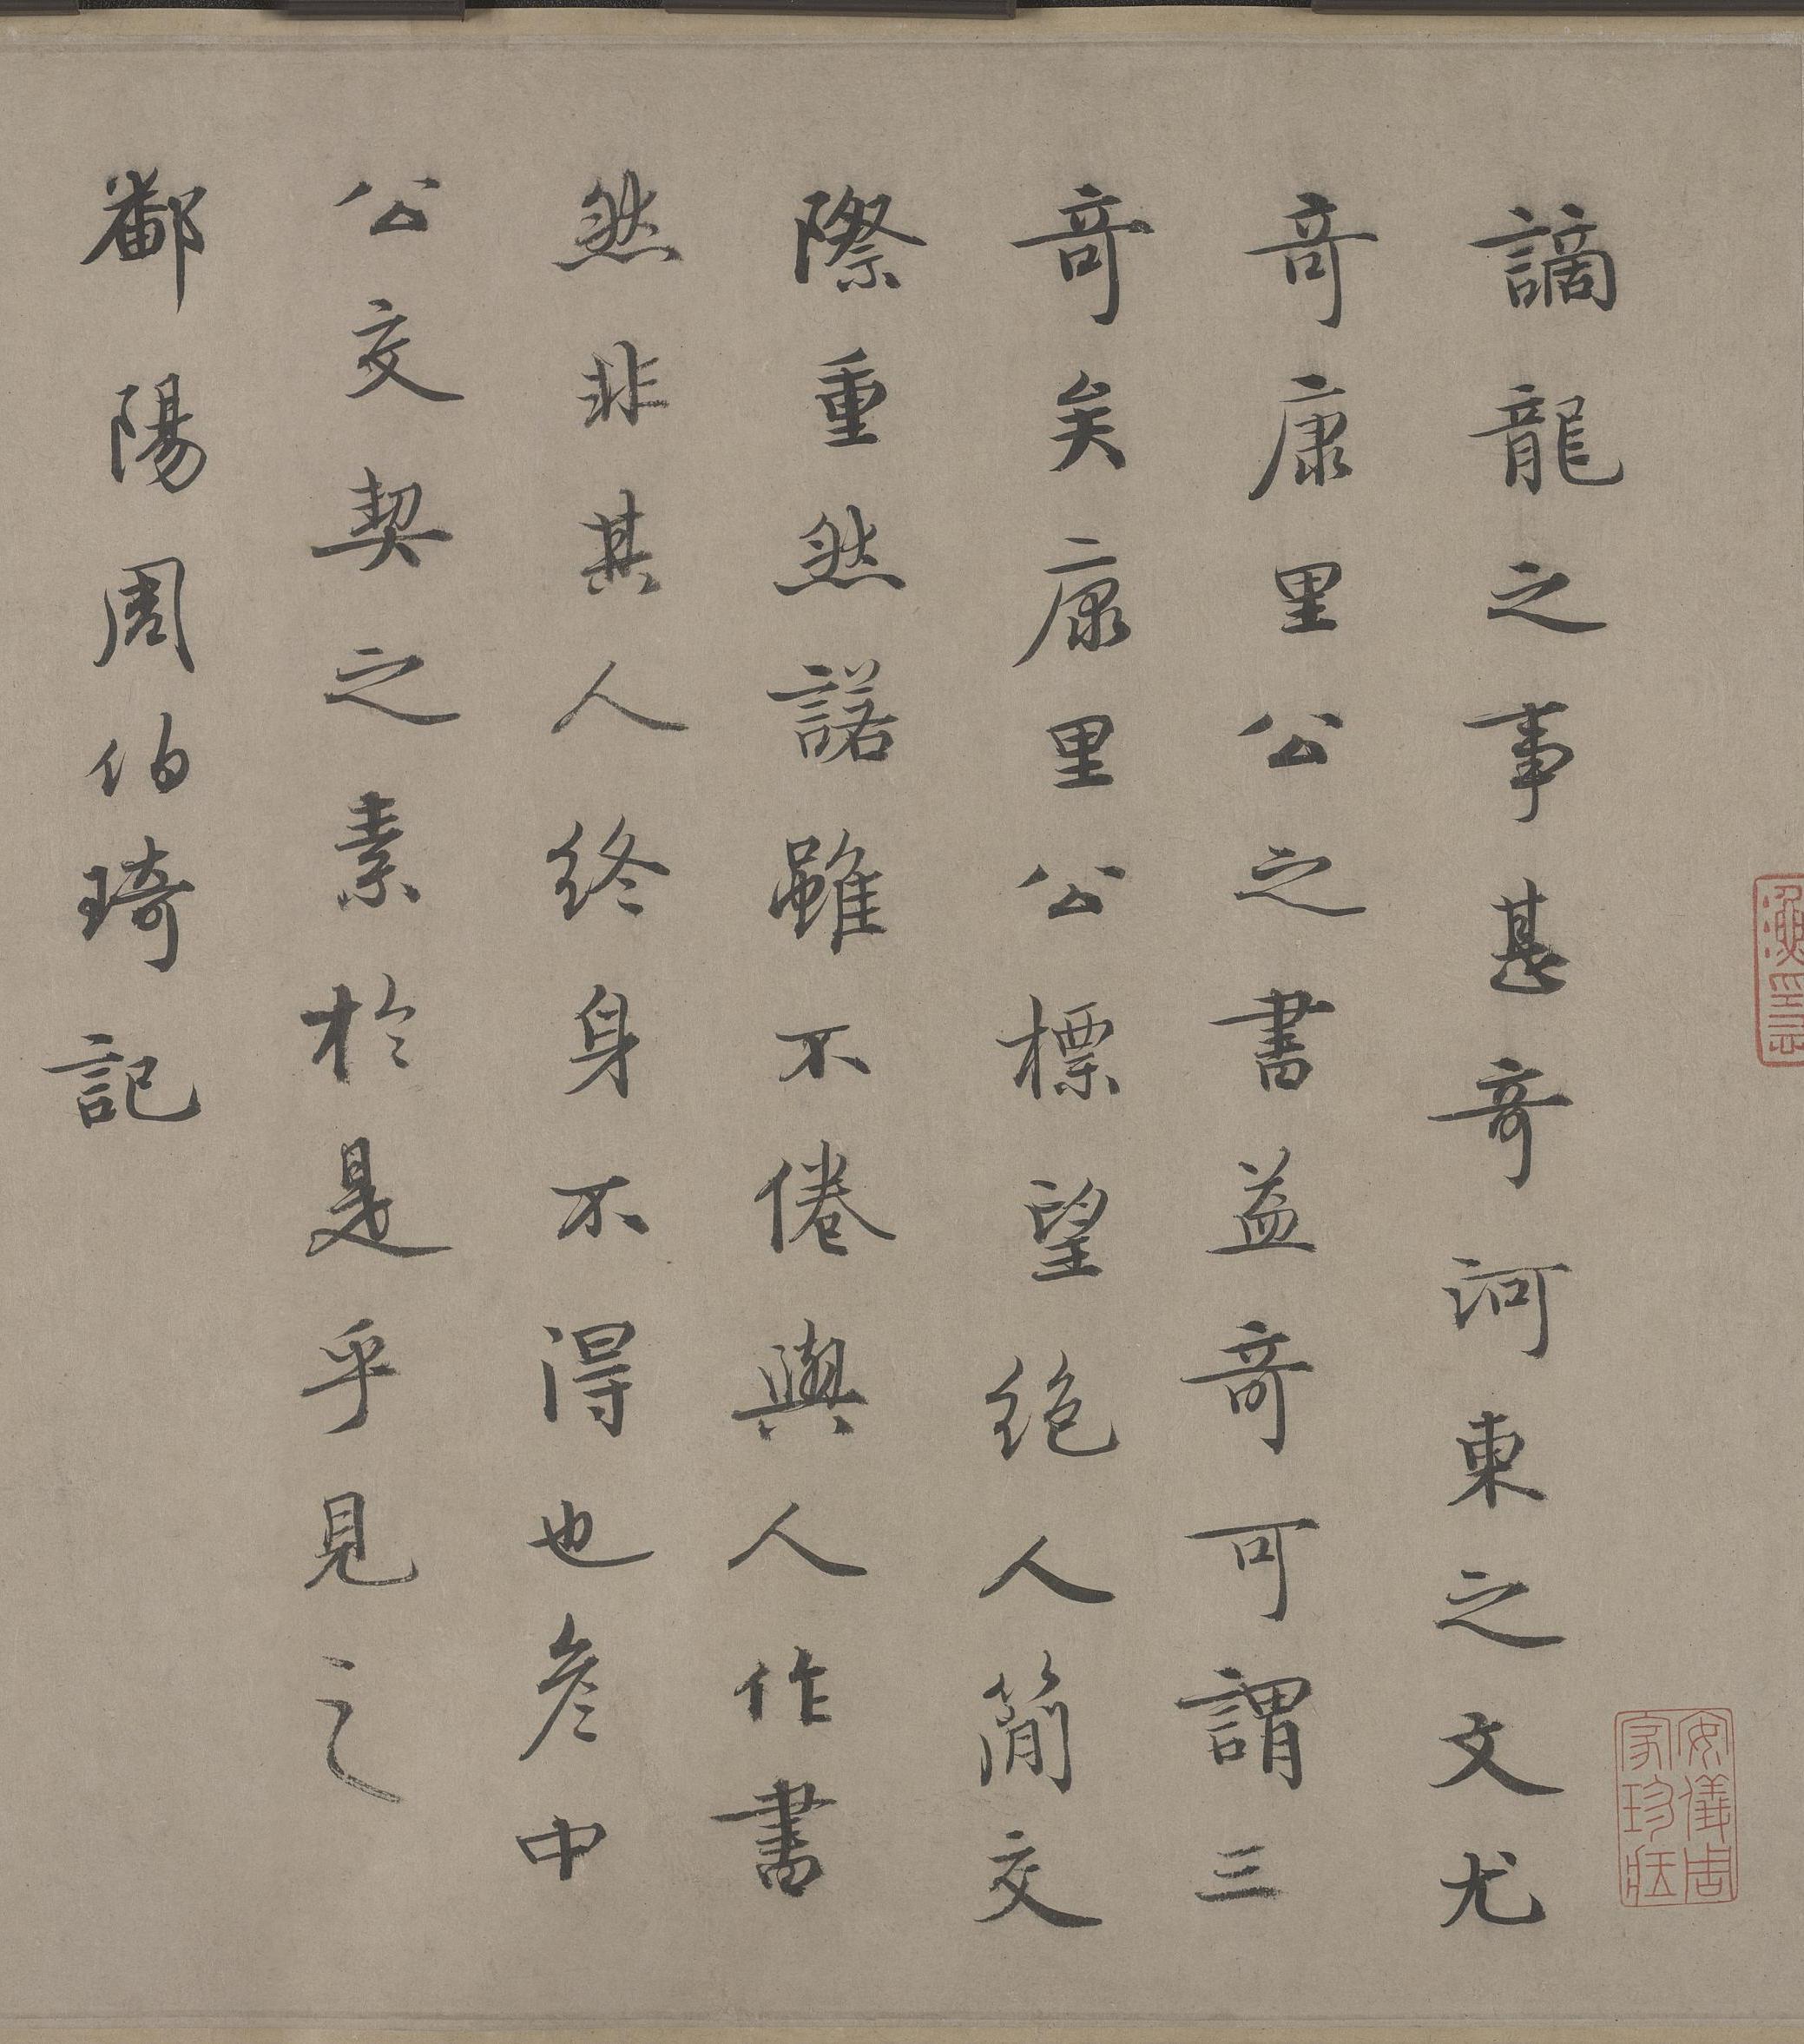 謫龍之事甚竒河東之文尤
竒康里公之書益竒可謂三
竒矣康里公標望絶人簡交
際重然諾雖不倦與人作書
然非其人終身不得也彦中
公交契之素於是乎見之
鄱陽周伯琦記
安儀周
家珍藏